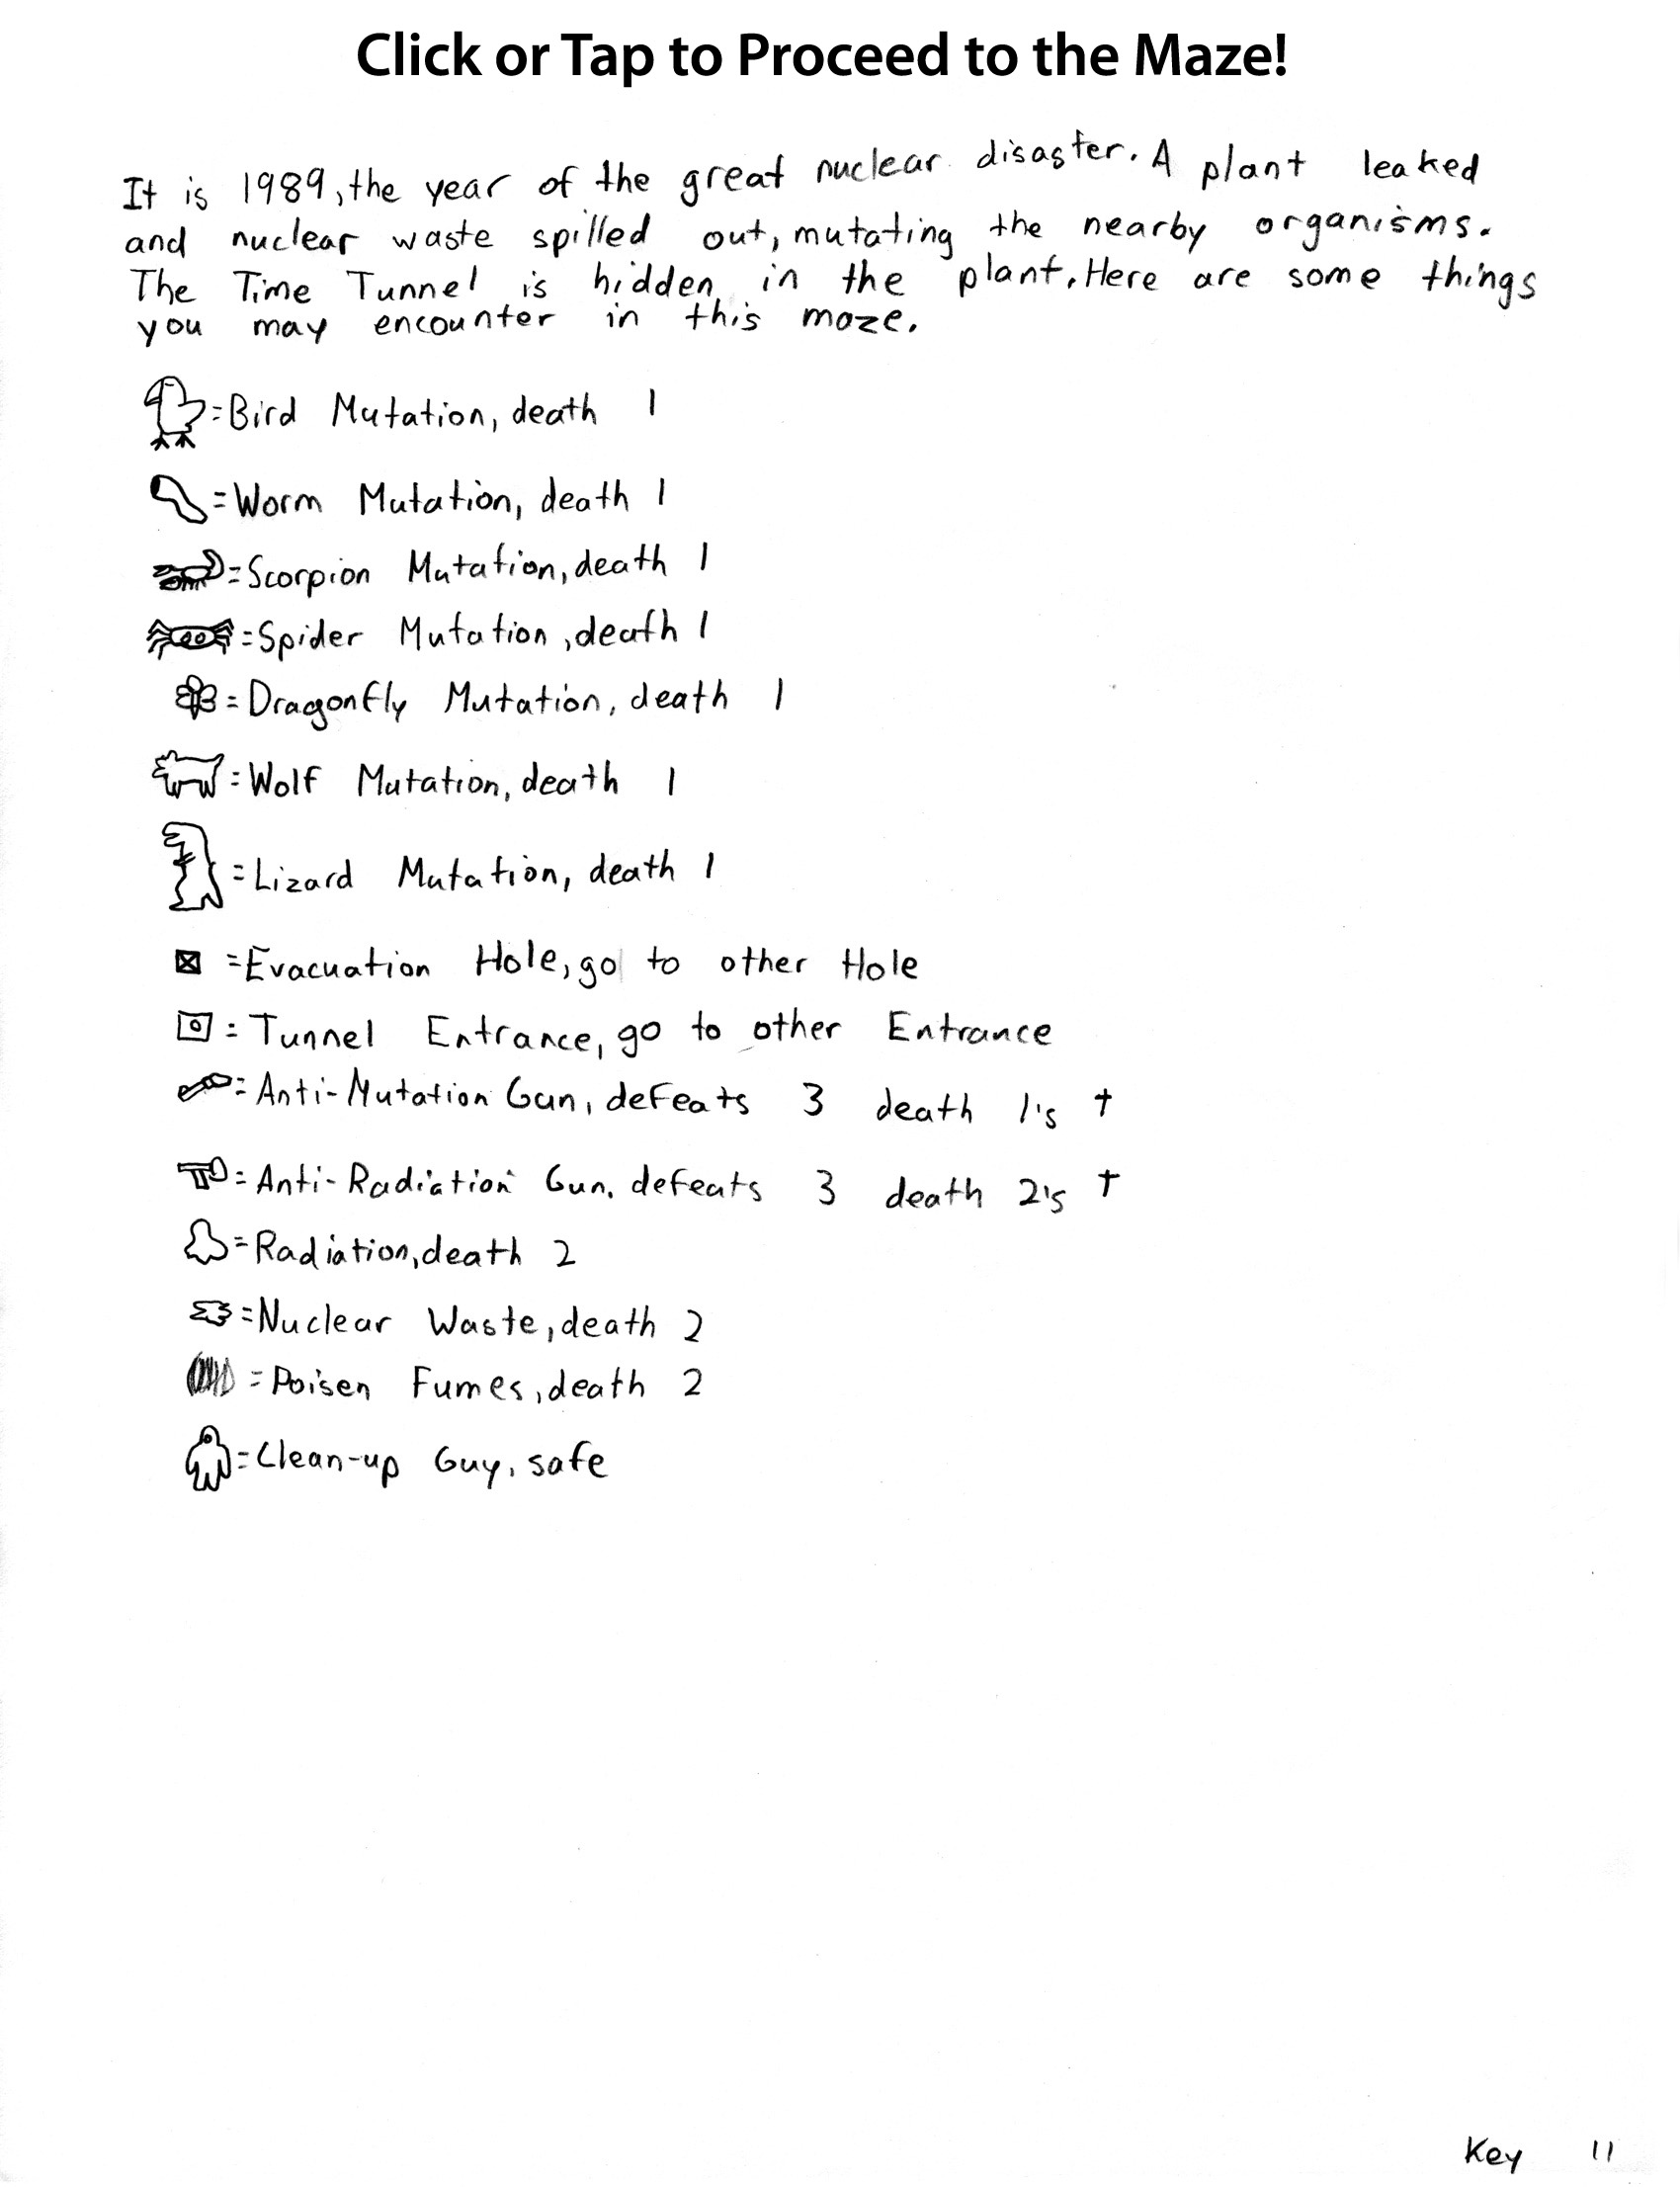 Click or Tap to Proceed to the Maze!
It is 1989, the year of the great nuclear disaster. A plant leaked
and nuclear waste spilled out, mutating the nearby organisms.
The Time Tunnel is hidden in the plant. Here are some things
you may encounter in this maze.
=Bird Mutation, death 1
=Worm Mutation, death 1
=Scorpion Mutation, death 1
=Spider Mutation, death 1
=Dragonfly Mutation, death 1
=Wolf Mutation, death 1
=Lizard Mutation, death 1
=Evacuation Hole, go to other Hole
=Tunnel Entrance, go to other Entrance
=Anti-Mutation Gun, defeats 3 death 1's †
=Anti-Radiation Gun, defeats 3 death 2's †
=Radiation, death 2
=Nuclear Waste, death 2
=Poisen Fumes, death 2
=Clean-up Guy, safe
Key 11